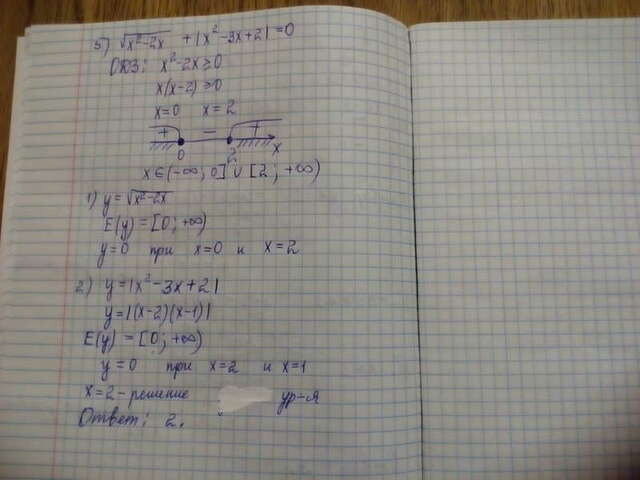 5) √x²-2x + |x²-3x+2| = 0
ОДЗ: x²-2x ≥ 0
x(x-2) ≥ 0
x=0 x=2
+ - +
0 2 x
x ∈ (-∞; 0] ∪ [2; +∞)
1) y=√x²-2x
E(y) = [0; +∞)
y=0 при x=0 и x=2
2) y=|x²-3x+2|
y=|(x-2)(x-1)|
E(y) = [0; +∞)
y=0 при x=2 и x=1
x=2 - решение ур-я
Ответ: 2.